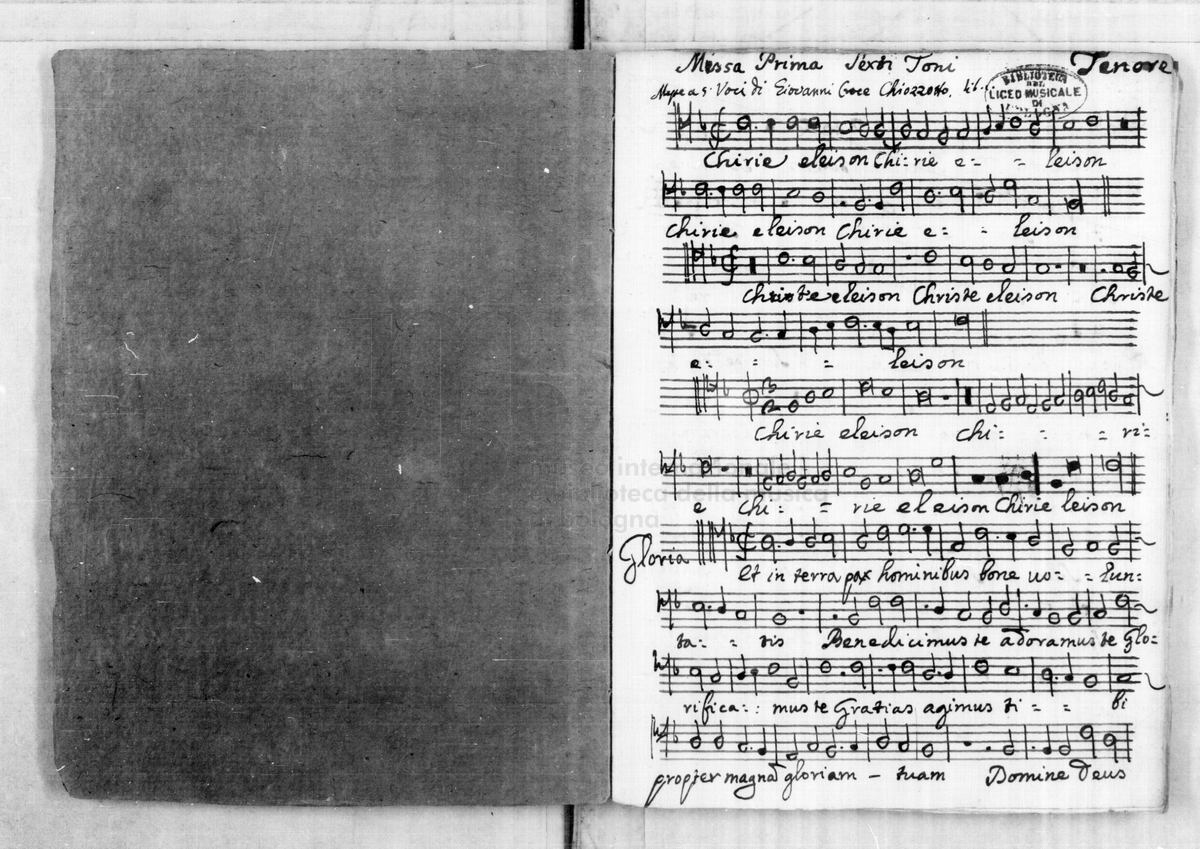 Missa Prima Sexti Toni Tenore
Messe a 5 Voci di Giovanni Croce Chiozzotto. lib.
BIBLIOTECA
DEL
LICEO MUSICALE
DI
BOLOGNA
Chirie eleison Chi: rie e= = leison
Chirie eleison Chirie e: = leison
Christe eleison Christe eleison Christe
e: = = leison
Chirie eleison Chi: = = ri:
e Chi: = rie eleison Chirie leison
Gloria
Et in terra pax hominibus bone uo: = lun:
ta: = tis Benedicimus te adoramus te Glo=
rifica: : mus te Gratias agimus ti = = bi
propter magnā gloriam – tuam Domine Deus
museo internazionale
e biblioteca della musica
di bologna